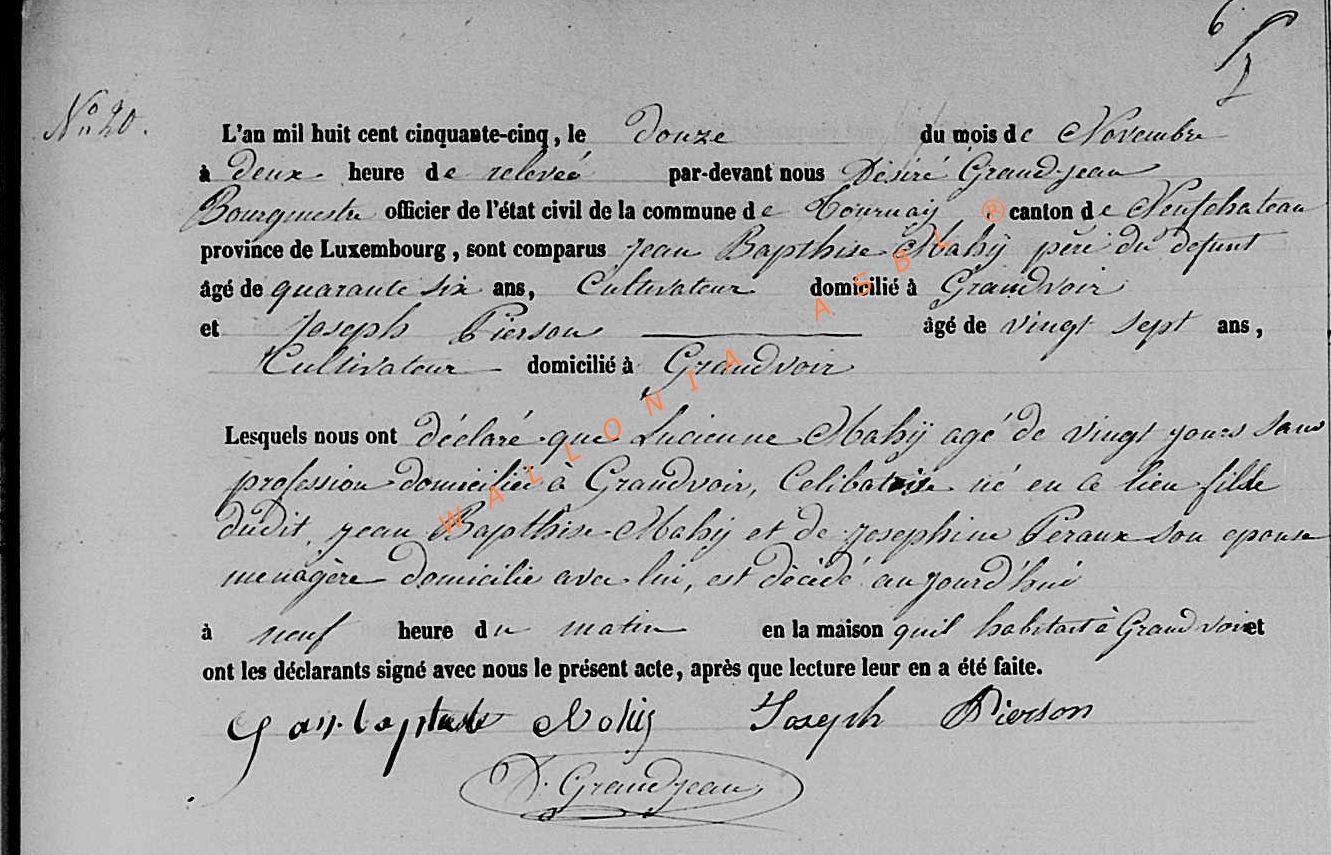 6
N° 20.
L'an mil huit cent cinquante-cinq, le douze du mois de Novembre
à deux heure de relevée par-devant nous Désiré Grand-jean
Bourgmestre officier de l'état civil de la commune de Tournay, canton de Neufchateau
province de Luxembourg, sont comparus Jean Bapthise Mahÿ pére du defunt
âgé de quarante six ans, Cultivateur domicilié à Grandvoir
et Joseph Pierson âgé de vingt sept ans,
Cultivateur domicilié à Grandvoir
Lesquels nous ont déclaré que Lucienne Mahÿ agé de vingt jours sans
profession domiciliée à Grandvoir, Celibataire né en ce lieu fille
dudit Jean Bapthise Mahy et de Josephine Peraux son epouse
menagère domicilie avec lui, est décédé aujourd'hui
à neuf heure du matin en la maison qu'il habitait à Grandvoir et
ont les déclarants signé avec nous le présent acte, après que lecture leur en a été faite.
Mahij Joseph Pierson
D. Grandjean
WALLONIA ASBL ®